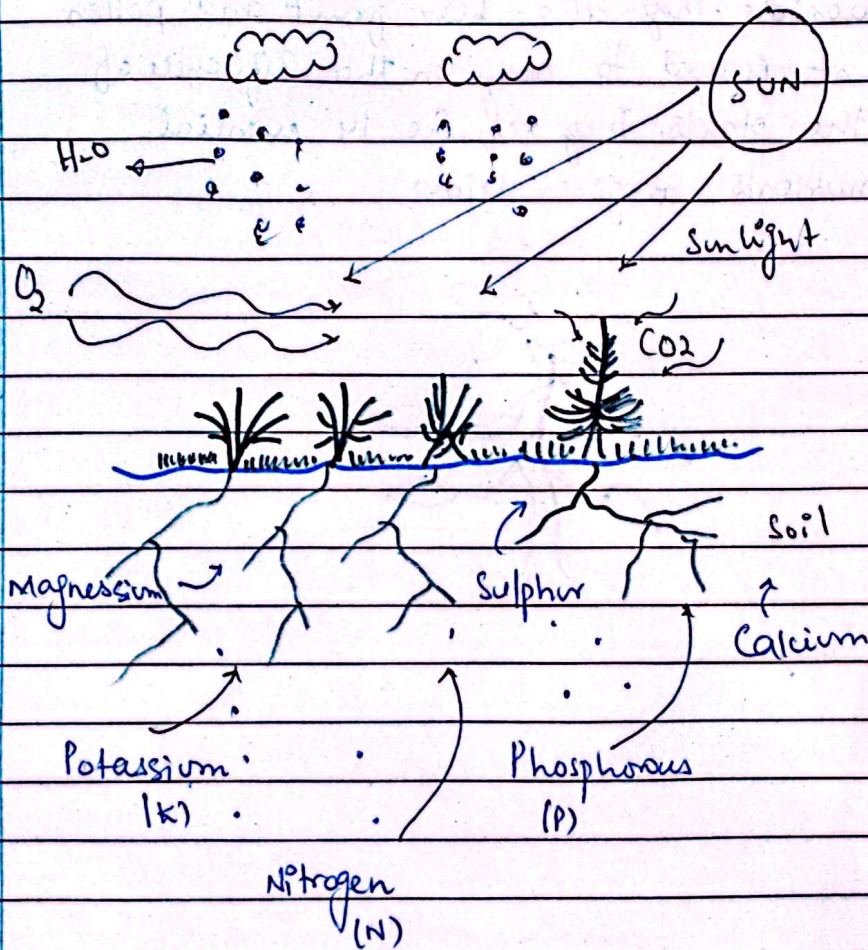 SUN
H2O
Sunlight
O2
CO2
Soil
Magnessium
Sulphur
Calcium
Potassium
(K)
Phosphorous
(P)
Nitrogen
(N)